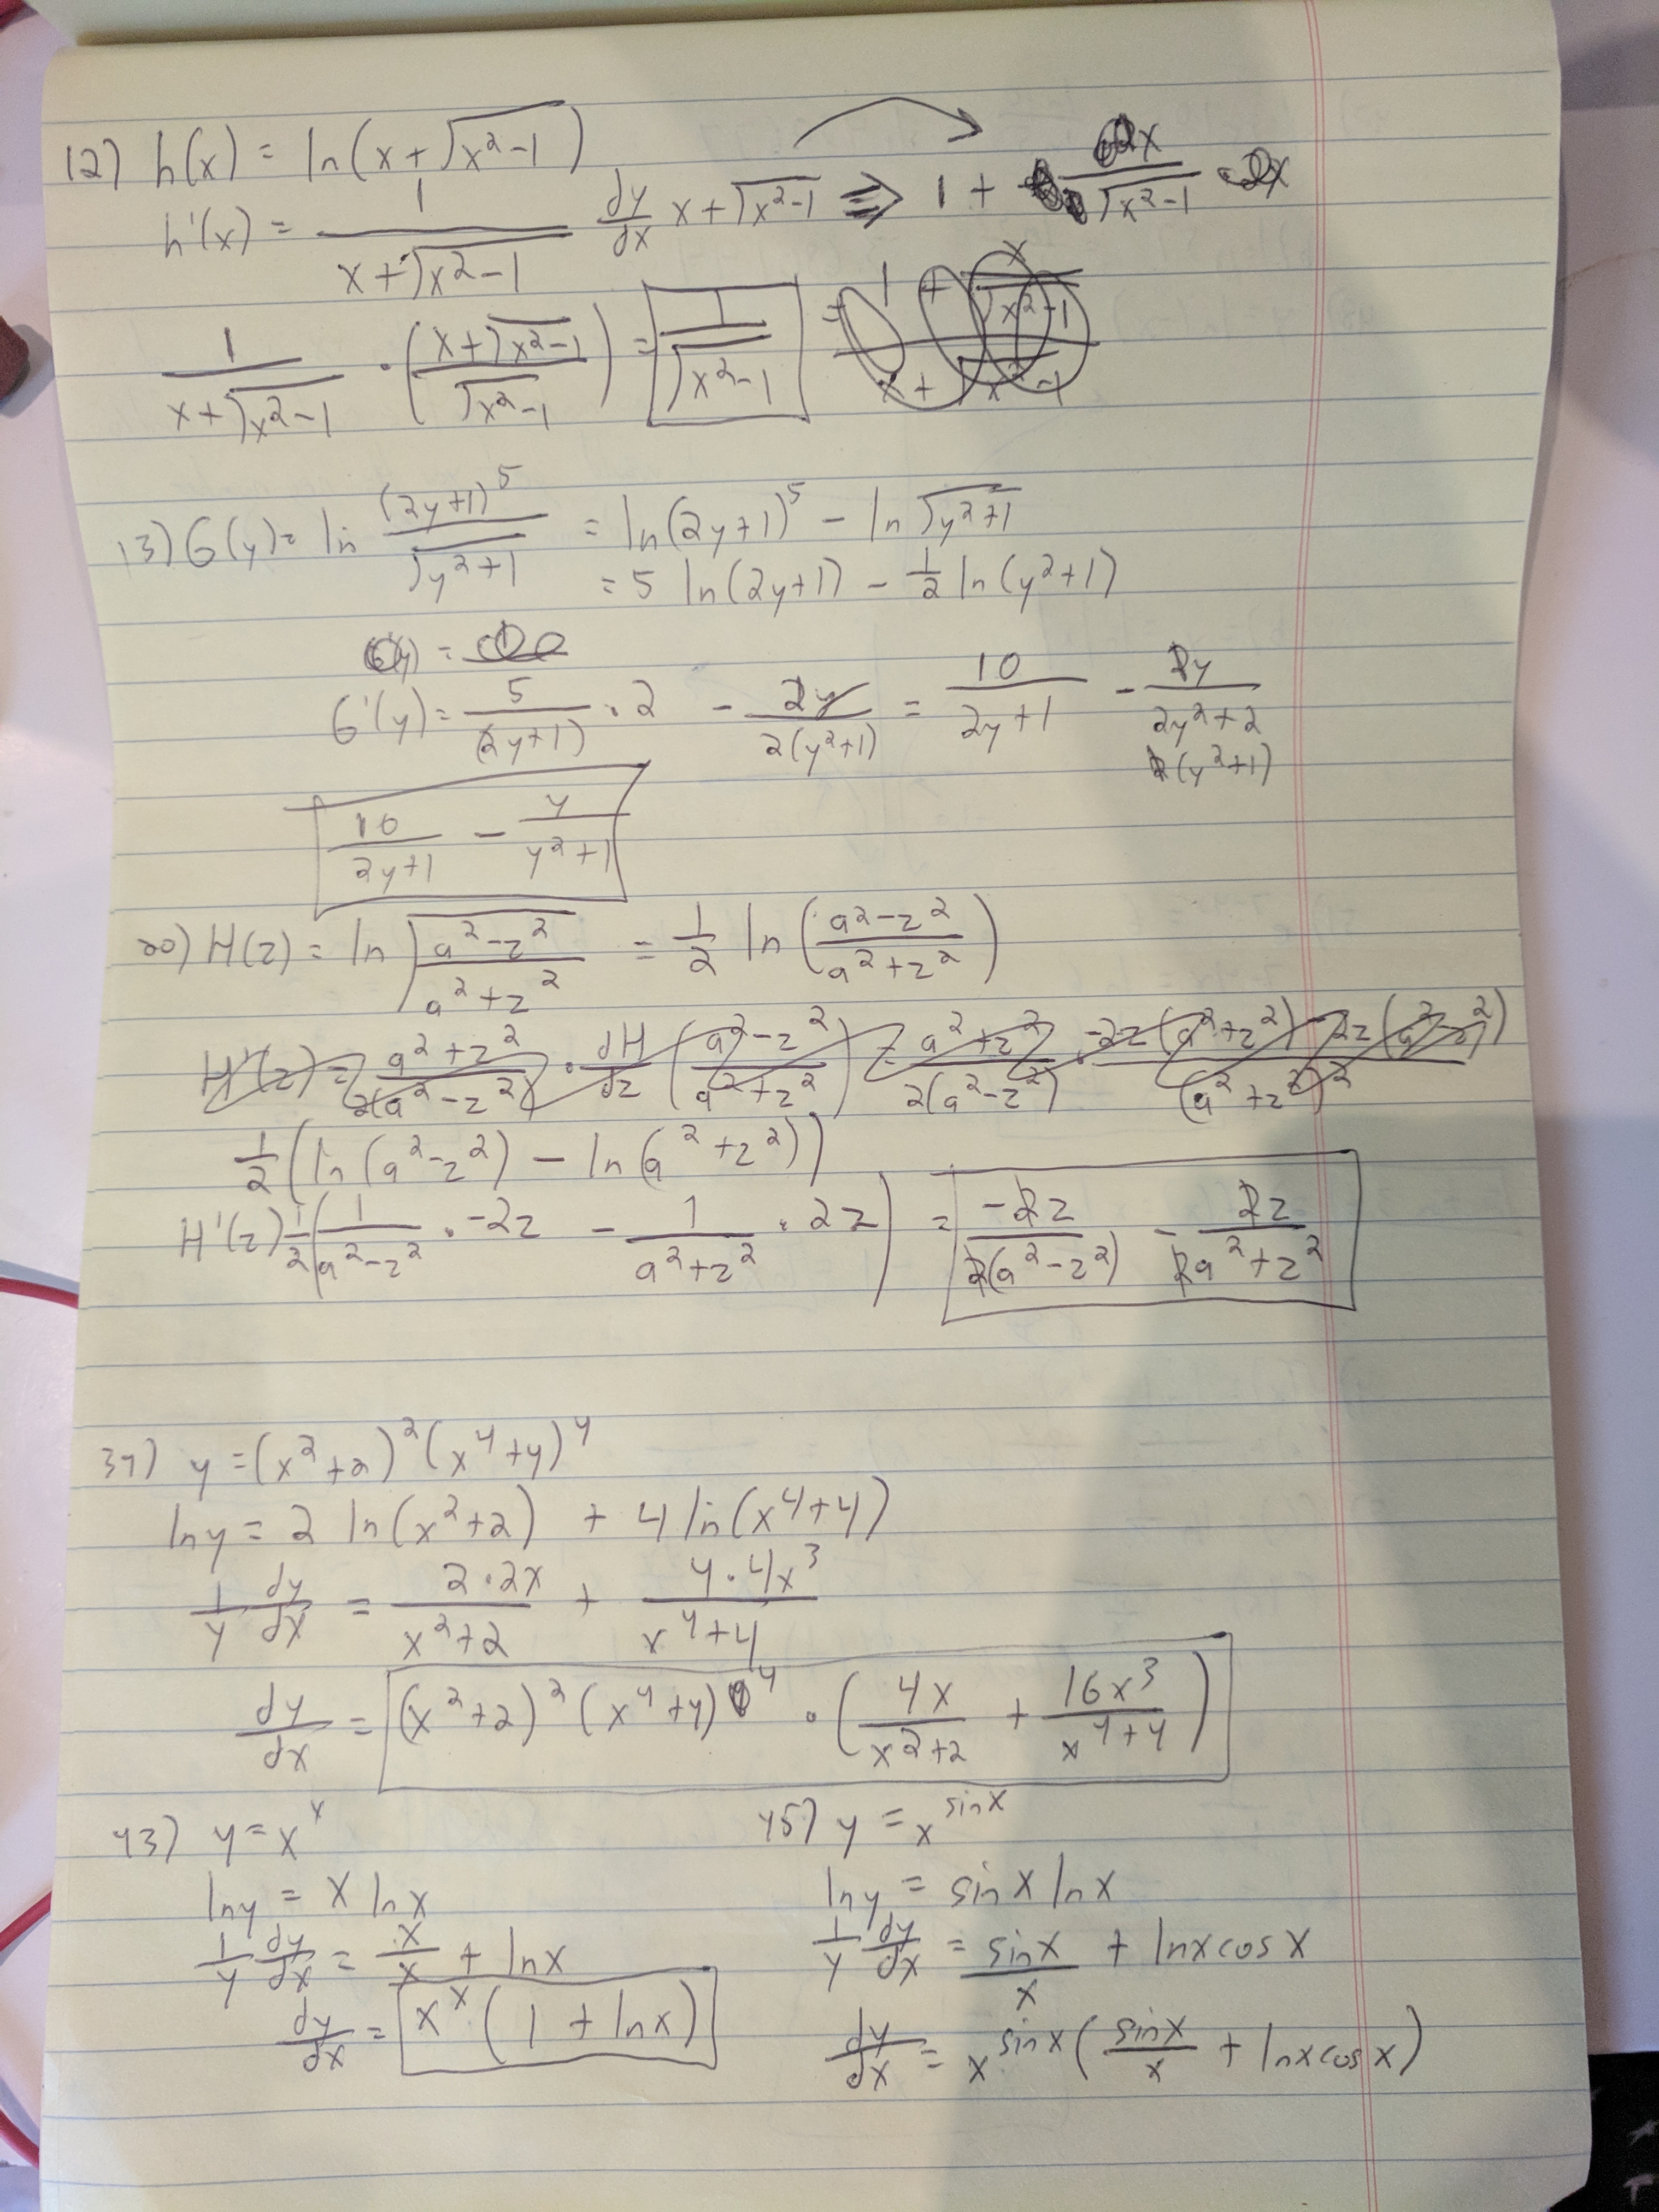 12) h(x) = ln(x + √(x²-1))
h'(x) = 1/(x+√(x²-1)) dy/dx x+√(x²-1) ⇒ 1 + x/√(x²-1)
1/(x+√(x²-1)) · ((x+√(x²-1))/√(x²-1)) = 1/√(x²-1)
13) G(y) = ln (2y+1)⁵/√(y²+1) = ln(2y+1)⁵ - ln√(y²+1)
= 5 ln(2y+1) - 1/2 ln(y²+1)
G'(y) = 5/(2y+1) · 2 - 2y/(2(y²+1)) = 10/(2y+1) - 2y/(2y²+2)
2(y²+1)
10/(2y+1) - y/(y²+1)
20) H(z) = ln √((a²-z²)/(a²+z²)) = 1/2 ln((a²-z²)/(a²+z²))
H'(z) = (a²+z²)/(2(a²-z²)) · dH/dz ((a²-z²)/(a²+z²)) = (a²+z²)/(2(a²-z²)) · (-2z(a²+z²) - 2z(a²-z²))/(a²+z²)²
1/2(ln(a²-z²) - ln(a²+z²))
H'(z) 1/2(1/(a²-z²) · -2z - 1/(a²+z²) · 2z) = -2z/(2(a²-z²)) - 2z/(2a²+z²)
37) y = (x²+2)²(x⁴+4)⁴
ln y = 2 ln(x²+2) + 4 ln(x⁴+4)
1/y dy/dx = 2·2x/(x²+2) + 4·4x³/(x⁴+4)
dy/dx = (x²+2)²(x⁴+4)⁴ · (4x/(x²+2) + 16x³/(x⁴+4))
43) y = x^x
ln y = x ln x
1/y dy/dx = x/x + ln x
dy/dx = x^x (1 + ln x)
45) y = x^sin x
ln y = sin x ln x
1/y dy/dx = sin x/x + ln x cos x
dy/dx = x^sin x (sin x/x + ln x cos x)